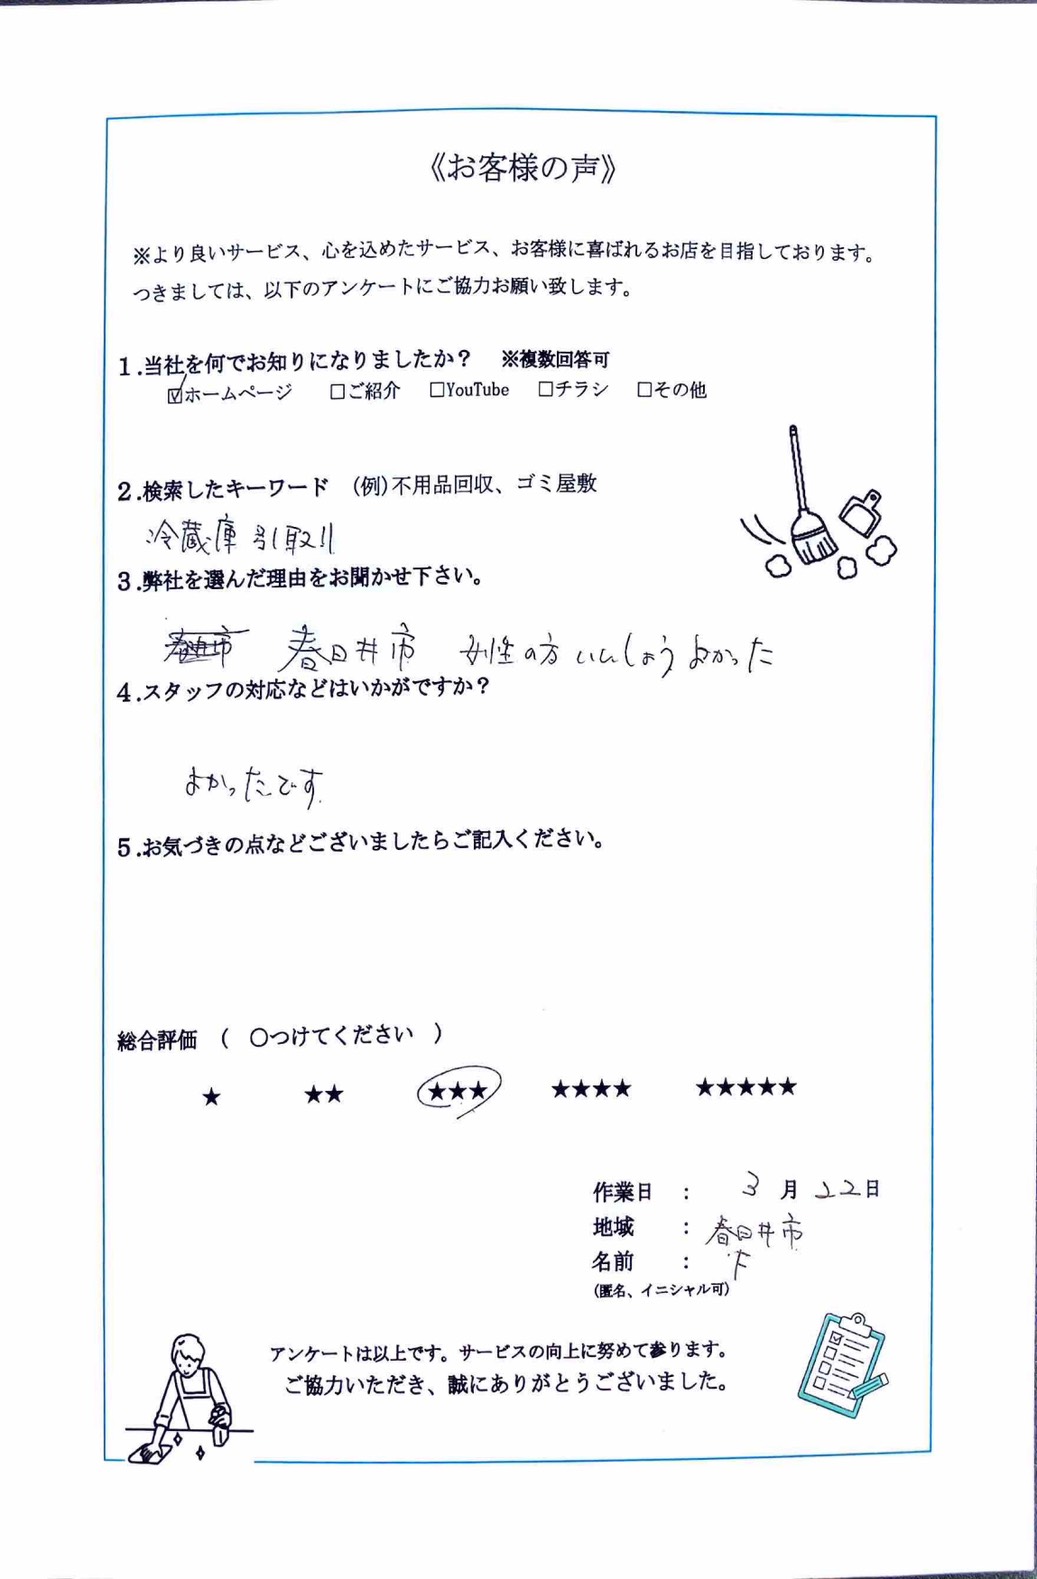 《お客様の声》
※より良いサービス、心を込めたサービス、お客様に喜ばれるお店を目指しております。
つきましては、以下のアンケートにご協力お願い致します。
1.当社を何でお知りになりましたか？ ※複数回答可
☑ホームページ □ご紹介 □YouTube □チラシ □その他
2.検索したキーワード (例)不用品回収、ゴミ屋敷
冷蔵庫 引取り
3.弊社を選んだ理由をお聞かせ下さい。
春日井市 女性の方 いんしょう よかった
4.スタッフの対応などはいかがですか？
よかったです
5.お気づきの点などございましたらご記入ください。
総合評価 （ 〇つけてください ）
★ ★★ ★★★ ★★★★ ★★★★★
作業日 ： 3月22日
地域 ： 春日井市
名前 ： F
(匿名、イニシャル可)
アンケートは以上です。サービスの向上に努めて参ります。
ご協力いただき、誠にありがとうございました。